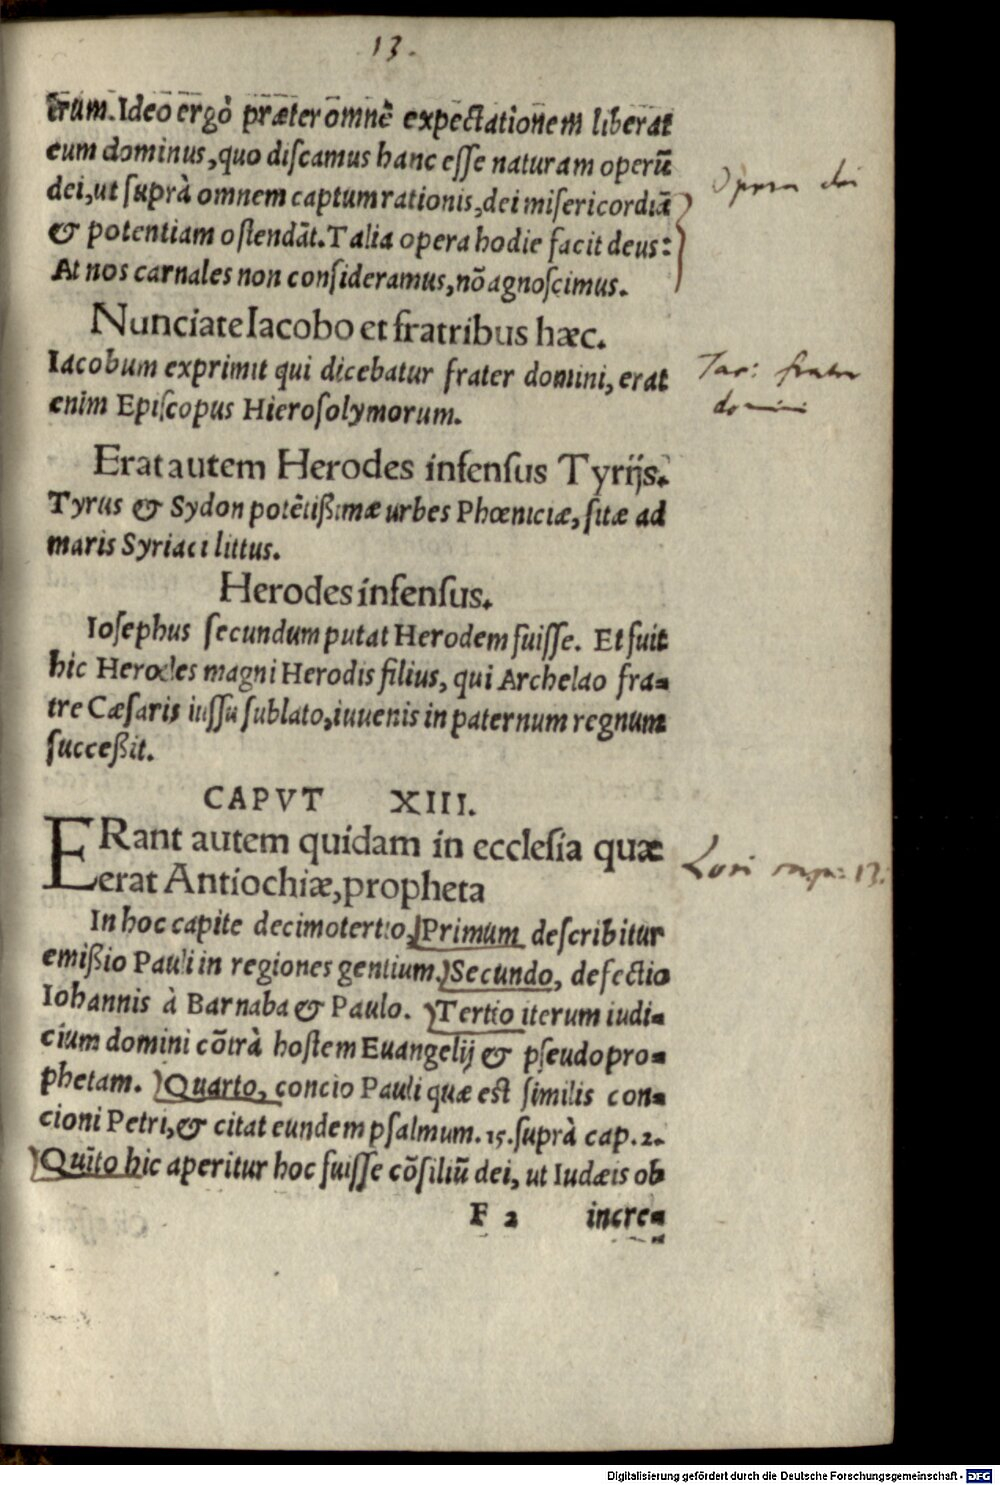 13.
trum. Ideo ergò præter omnẽ expectationem liberat
eum dominus, quo diſcamus hanc eſſe naturam operũ
dei, ut ſuprà omnem captum rationis, dei miſericordiã
& potentiam oſtendãt. Talia opera hodie facit deus:
At nos carnales non conſideramus, nõ agnoſcimus.
Opera dei
Nunciate Iacobo et fratribus hæc.
Iacobum exprimit qui dicebatur frater domini, erat
enim Epiſcopus Hieroſolymorum.
Jac: frater
domini
Erat autem Herodes infenſus Tyrijs.
Tyrus & Sydon potẽtißimæ urbes Phœniciæ, ſitæ ad
maris Syriaci littus.
Herodes infenſus.
Ioſephus ſecundum putat Herodem fuiſſe. Et fuit
hic Herodes magni Herodis filius, qui Archelao fra-
tre Cæſaris iuſſu ſublato, iuuenis in paternum regnum
succeßit.
CAPVT XIII.
ERant autem quidam in eccleſia quæ
erat Antiochiæ, propheta
In hoc capite decimotertio, Primum deſcribitur
emißio Pauli in regiones gentium. Secundo, defectio
Iohannis à Barnaba & Paulo. Tertio iterum iudi-
cium domini cõtrà hoſtem Euangelij & pſeudopro-
phetam. Quarto, concio Pauli quæ eſt ſimilis con-
cioni Petri, & citat eundem pſalmum. 15. ſuprà cap. 2.
Quĩto hic aperitur hoc fuiſſe cõſiliũ dei, ut Iudæis ob
F 2 incre-
Digitalisierung gefördert durch die Deutsche Forschungsgemeinschaft - DFG